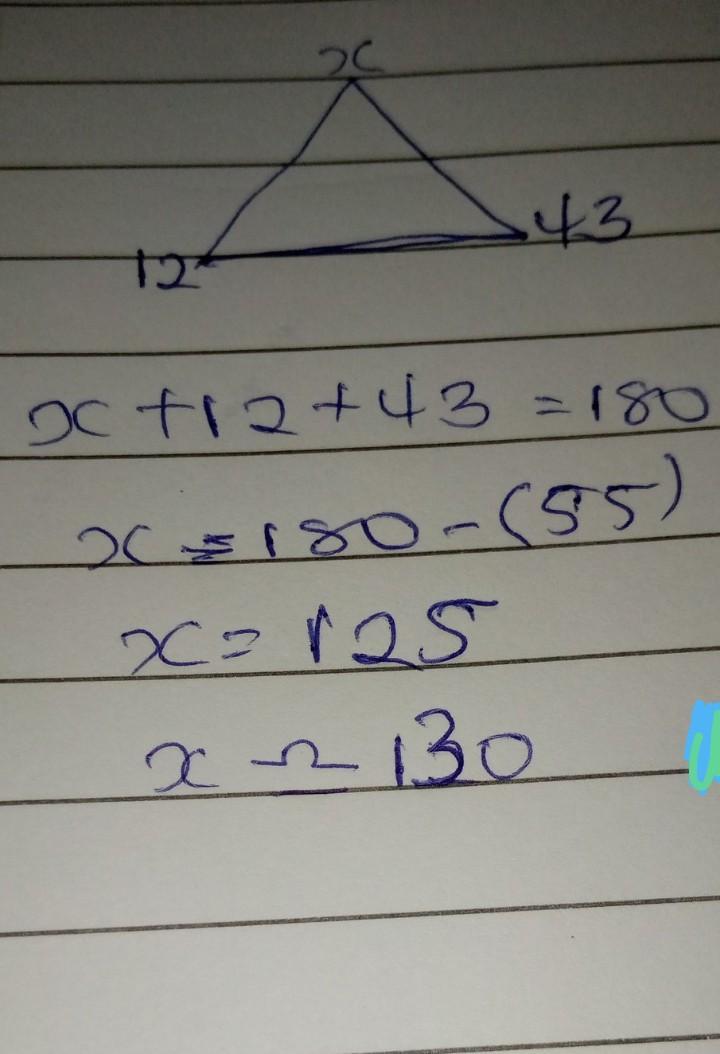 x
12
43
x + 12 + 43 = 180
x = 180 - (55)
x = 125
x ≏ 130